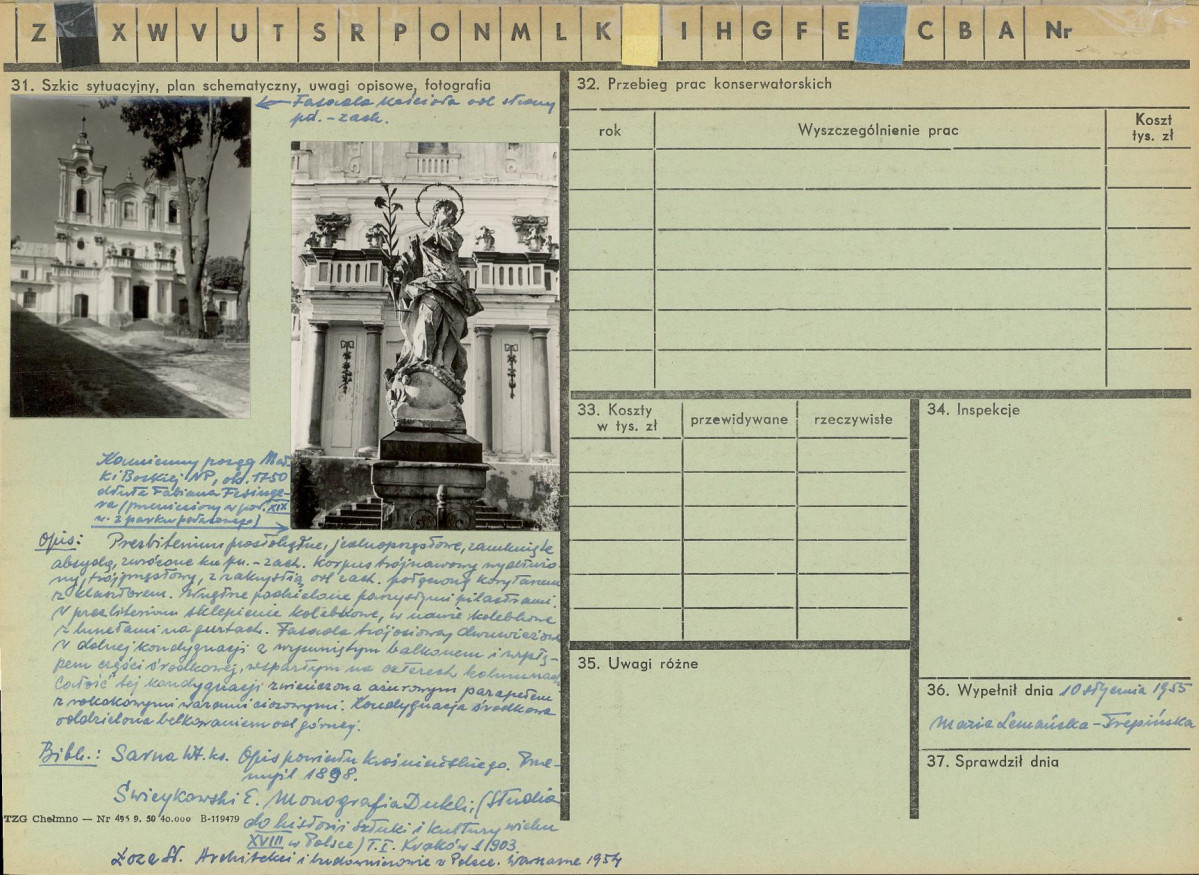 Z X W V U T S R P O N M L K I H G F E C B A Nr
31. Szkic sytuacyjny, plan schematyczny, uwagi opisowe, fotografia
← Fasada kościoła od strony
pd.-zach.
Kamienny posąg Mat-
ki Boskiej NP, ok. 1750
dłuta Fabiana Fesinge-
ra (przeniesiony w poł. XIX
w. z parku pałacowego) →
Opis: Prezbiterium prostokątne, jednoprzęsłowe, zamknięte
absydą, zwrócone ku pn.-zach. Korpus trójnawowy wydłużo-
ny, trójprzęsłowy, z zakrystią od zach. połączoną korytarzem
z klasztorem. Wnętrze podzielone parzystymi pilastrami.
W prezbiterium sklepienie kolebkowe, w nawie kolebkowe
z lunetami na gurtach. Fasada trójosiowa, dwuwieżowa
w dolnej kondygnacji z wysuniętym balkonem i
części środkowej, wspartym na czterech kolumnach
Całość tej kondygnacji zwieńczona ażurowym parapetem
z rokokowymi wazami ciosowymi. Kondygnacja środkowa
oddzielona belkowaniem od górnej.
Bibl.: Sarna Wł. ks. Opis powiatu krośnieńskiego. Prze-
myśl 1898.
Świeykowski E. Monografia Dukli, (Studia
do historii sztuki i kultury wieku
XVIII w Polsce) T.I. Kraków 1903.
Łoza St. Architekci i budowniczowie w Polsce. Warszawa 1954
TZG Chełmno — Nr 9. 50 40.000 B-119479
32. Przebieg prac konserwatorskich
rok Wyszczególnienie prac Koszt
tys. zł
33. Koszty
w tys. zł przewidywane rzeczywiste
34. Inspekcje
35. Uwagi różne
36. Wypełnił dnia 10 stycznia 1955
Maria Lemańska-Trepińska
37. Sprawdził dnia